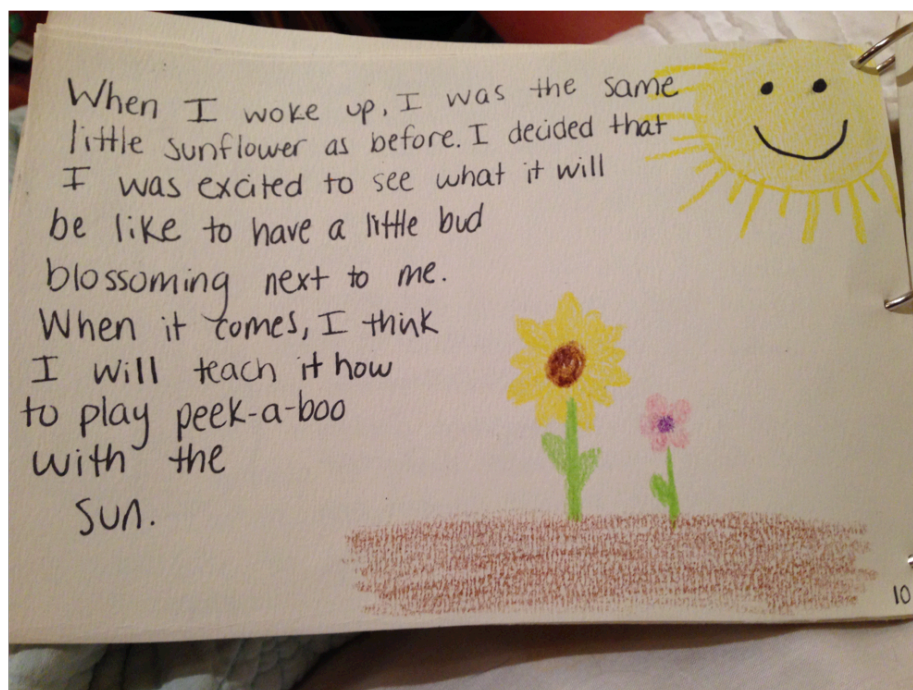 When I woke up, I was the same
little sunflower as before. I decided that
I was excited to see what it will
be like to have a little bud
blossoming next to me.
When it comes, I think
I will teach it how
to play peek-a-boo
with the
sun.
10